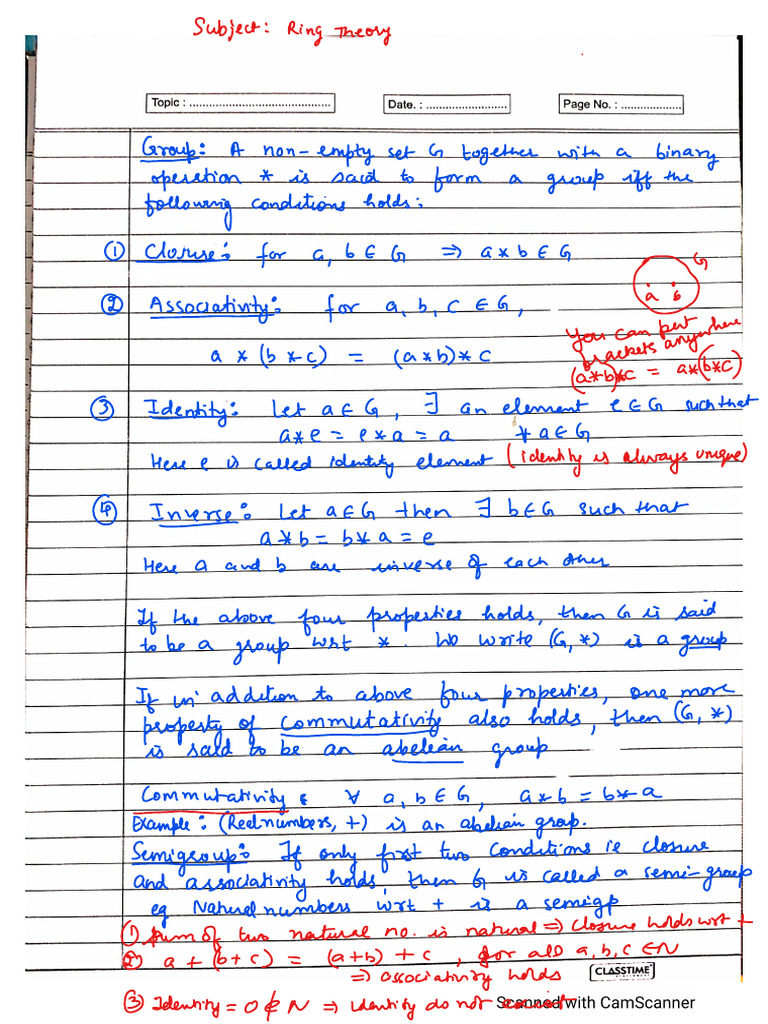 Subject: Ring Theory
Topic : ........................................... Date. : ......................... Page No. : ...................
Group: A non-empty set G together with a binary
operation * is said to form a group iff the
following conditions holds:
① Closure: for a, b ∈ G ⇒ a*b ∈ G
G
a b
② Associativity: for a, b, c ∈ G,
You can put
brackets anywhere
a * (b * c) = (a*b)*c
(a*b)*c = a*(b*c)
③ Identity: Let a∈G, ∃ an element e∈G such that
a*e = e*a = a ∀ a∈G
Here e is called identity element (identity is always unique)
④ Inverse: Let a∈G then ∃ b∈G such that
a*b = b*a = e
Here a and b are inverse of each other
If the above four properties holds, then G is said
to be a group wrt *. We write (G, *) is a group
If in addition to above four properties, one more
property of commutativity also holds, then (G, *)
is said to be an abelian group
Commutativity: ∀ a, b ∈ G, a*b = b*a
Example: (Real numbers, +) is an abelian group.
Semigroup: If only first two conditions ie closure
and associativity holds, then G is called a semi-group
eg Natural numbers wrt + is a semigp
① Sum of two natural no. is natural ⇒ closure holds wrt +
② a + (b+c) = (a+b) + c, for all a, b, c ∈ N
⇒ associativity holds
CLASSTIME
③ Identity = 0 ∉ N ⇒ identity do not
Scanned with CamScanner